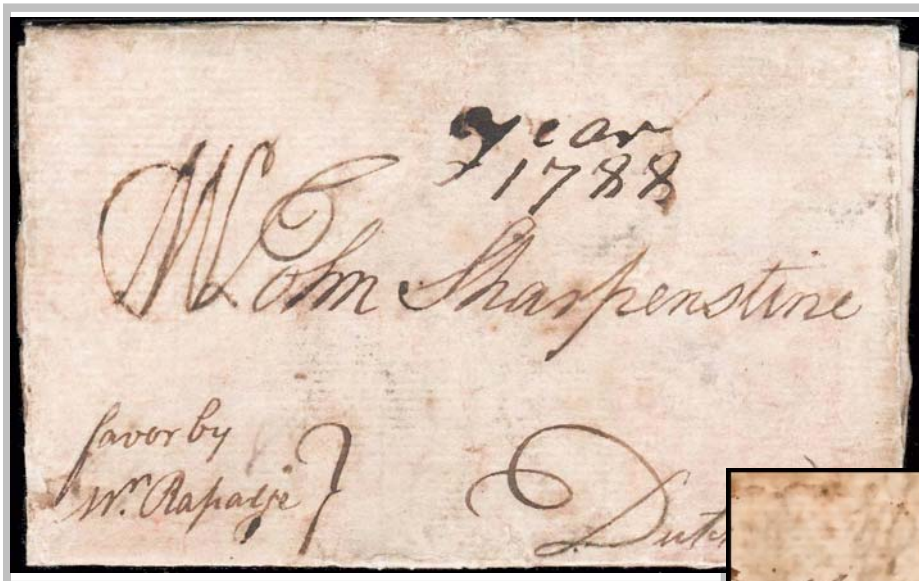 year
1788
Mr John Sharpenstine
favor by
Mr. Rapalje
Dutch